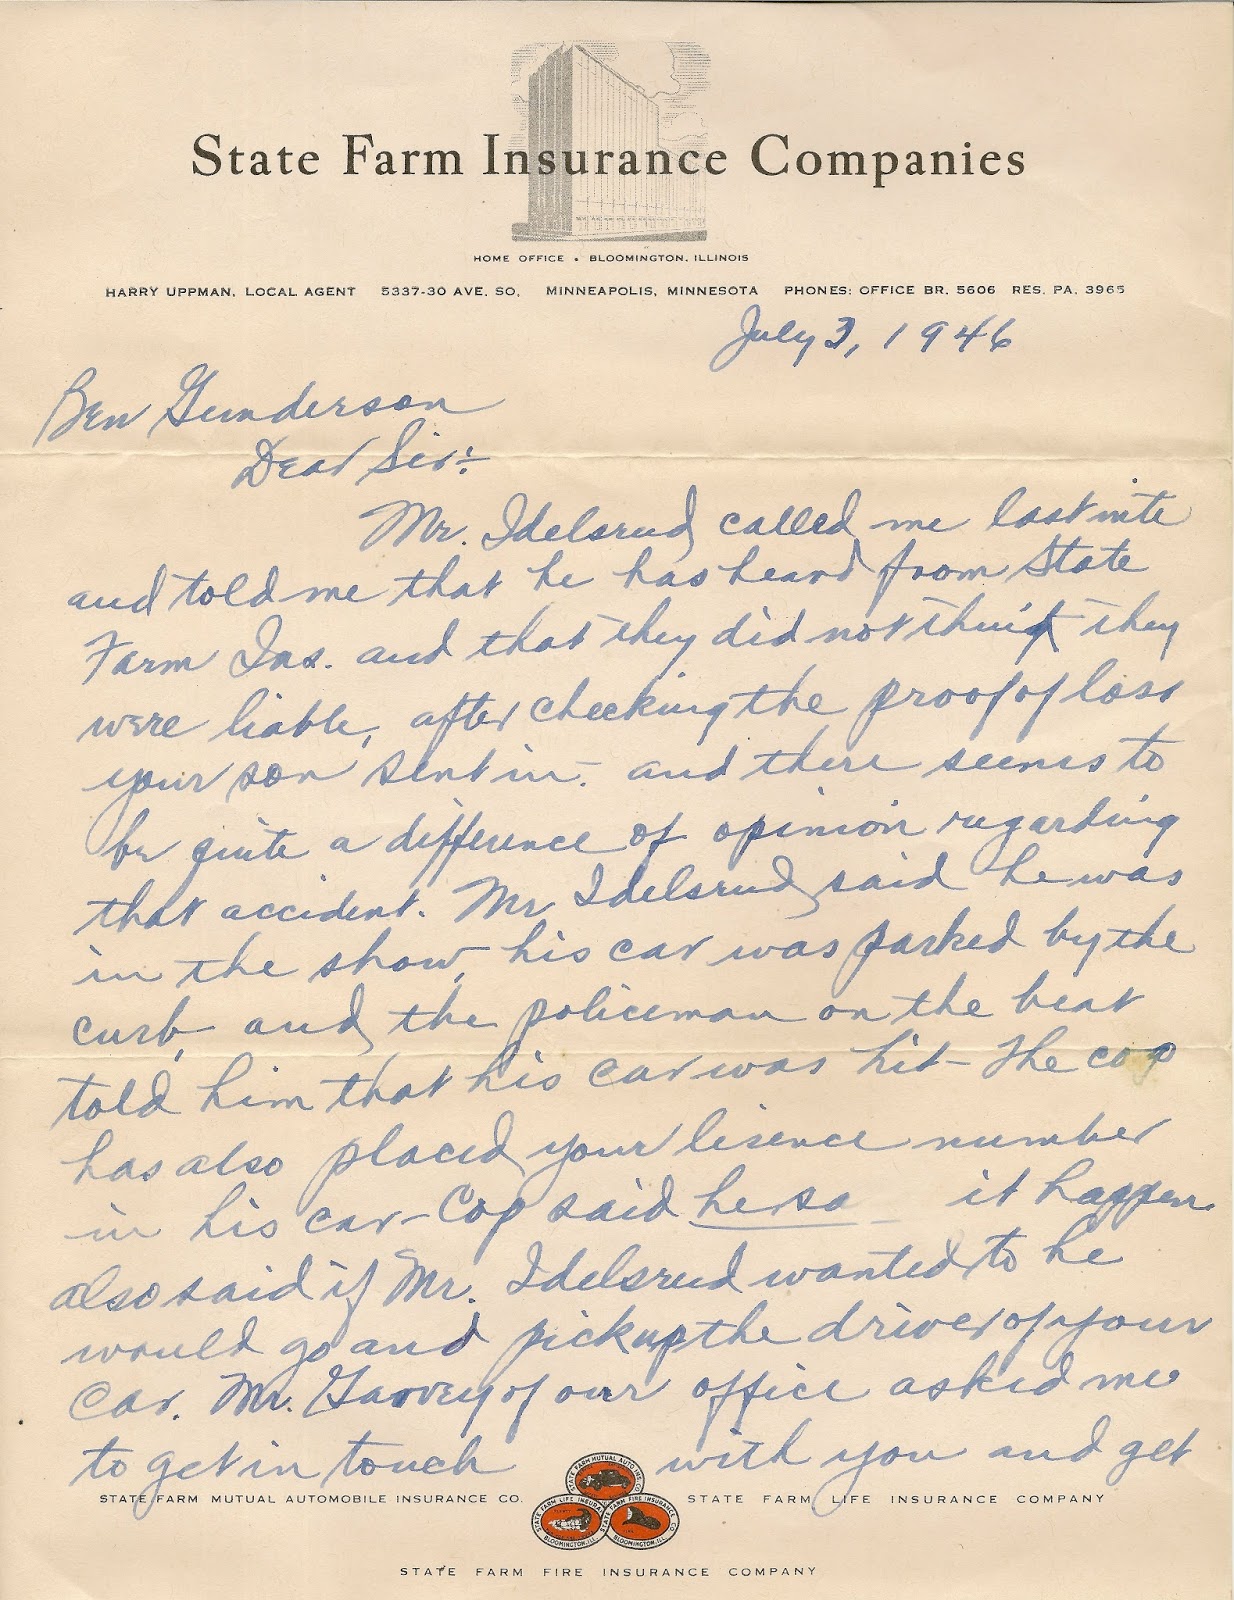 State Farm Insurance Companies
HOME OFFICE • BLOOMINGTON, ILLINOIS
HARRY UPPMAN, LOCAL AGENT 5337-30 AVE. SO. MINNEAPOLIS, MINNESOTA PHONES: OFFICE BR. 5606 RES. PA. 3965
July 3, 1946
Ben Gunderson
Dear Sir:
Mr. Idelsrud called me last nite
and told me that he has heard from State
Farm Ins. and that they did not think they
were liable, after checking the proof of loss
your son sent in - and there seems to
be quite a difference of opinion regarding
that accident. Mr Idelsrud said he was
in the show, his car was parked by the
curb, and the policeman on the beat
told him that his car was hit - The cop
has also placed your lisence number
in his car - Cop said he saw it happen
also said if Mr. Idelsrud wanted to he
would go and pick up the driver of your
car. Mr. Garvey of our office asked me
to get in touch with you and get
STATE FARM MUTUAL AUTOMOBILE INSURANCE CO. STATE FARM LIFE INSURANCE COMPANY
STATE FARM MUTUAL AUTO INS. CO.
STATE FARM LIFE INSURANCE BLOOMINGTON, ILL.
STATE FARM FIRE INSURANCE CO. BLOOMINGTON, ILL.
STATE FARM FIRE INSURANCE COMPANY